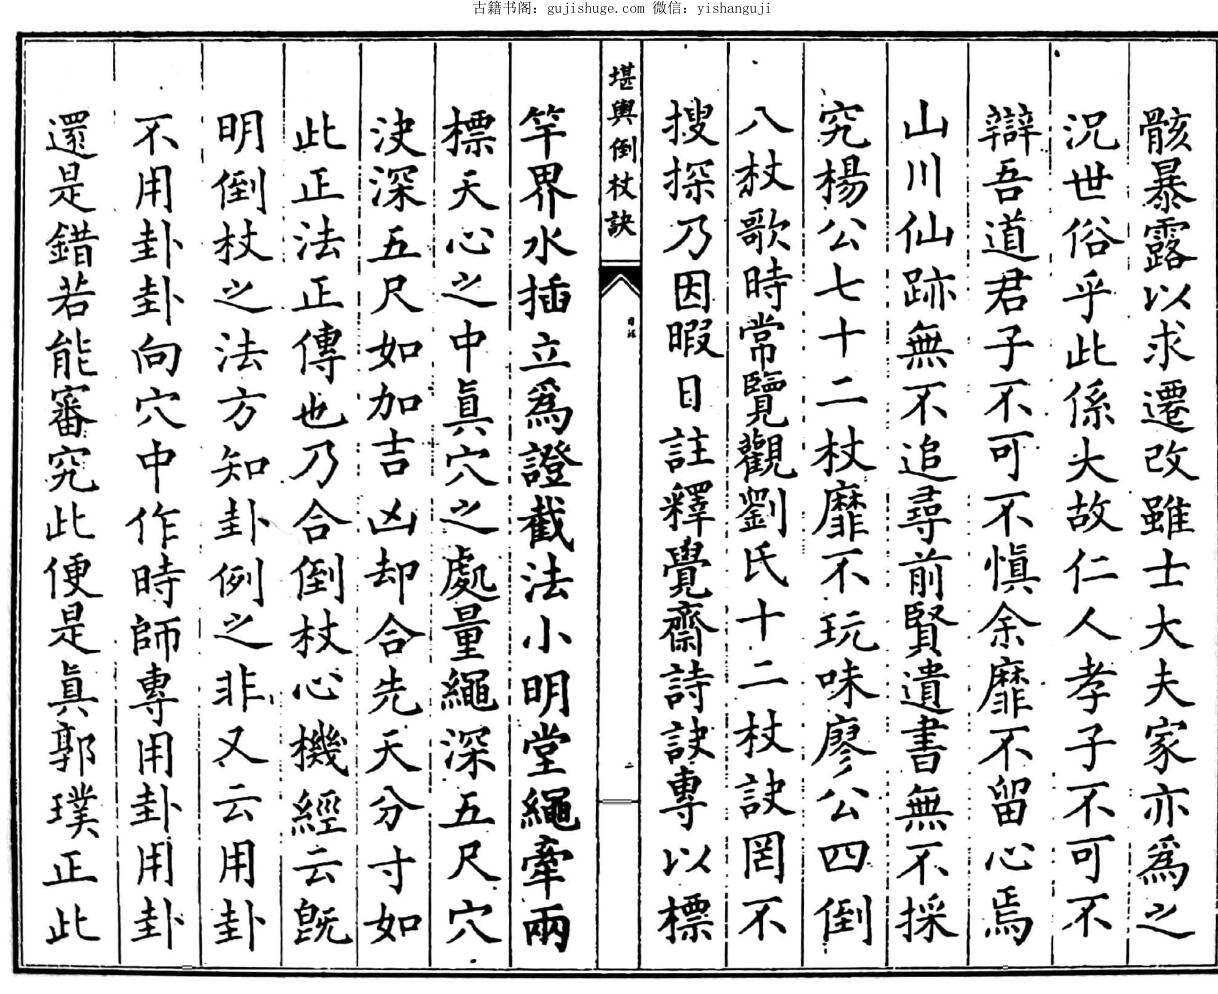 古籍书阁：gujishuge.com 微信：yishanguji
骸暴露以求遷改雖士大夫家亦爲之
況世俗乎此係大故仁人孝子不可不
辯吾道君子不可不愼余靡不留心焉
山川仙跡無不追尋前賢遺書無不採
究楊公七十二杖靡不玩味廖公四倒
八杖歌時常覽觀劉氏十二杖訣罔不
搜探乃因暇日註釋覺齋詩訣專以標
堪輿倒杖訣
竿界水插立爲證截法小明堂繩牽兩
標天心之中眞穴之處量繩深五尺穴
决深五尺如加吉凶却合先天分寸如
此正法正傳也乃合倒杖心機經云旣
明倒杖之法方知卦例之非又云用卦
不用卦卦向穴中作時師專用卦用卦
還是錯若能審究此便是眞郭璞正此